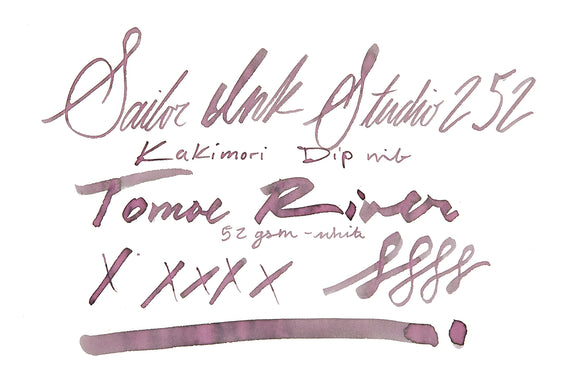 Sailor Ink Studio 252
Kakimori Dip nib
Tomoe River
52 gsm - white
X XXXX